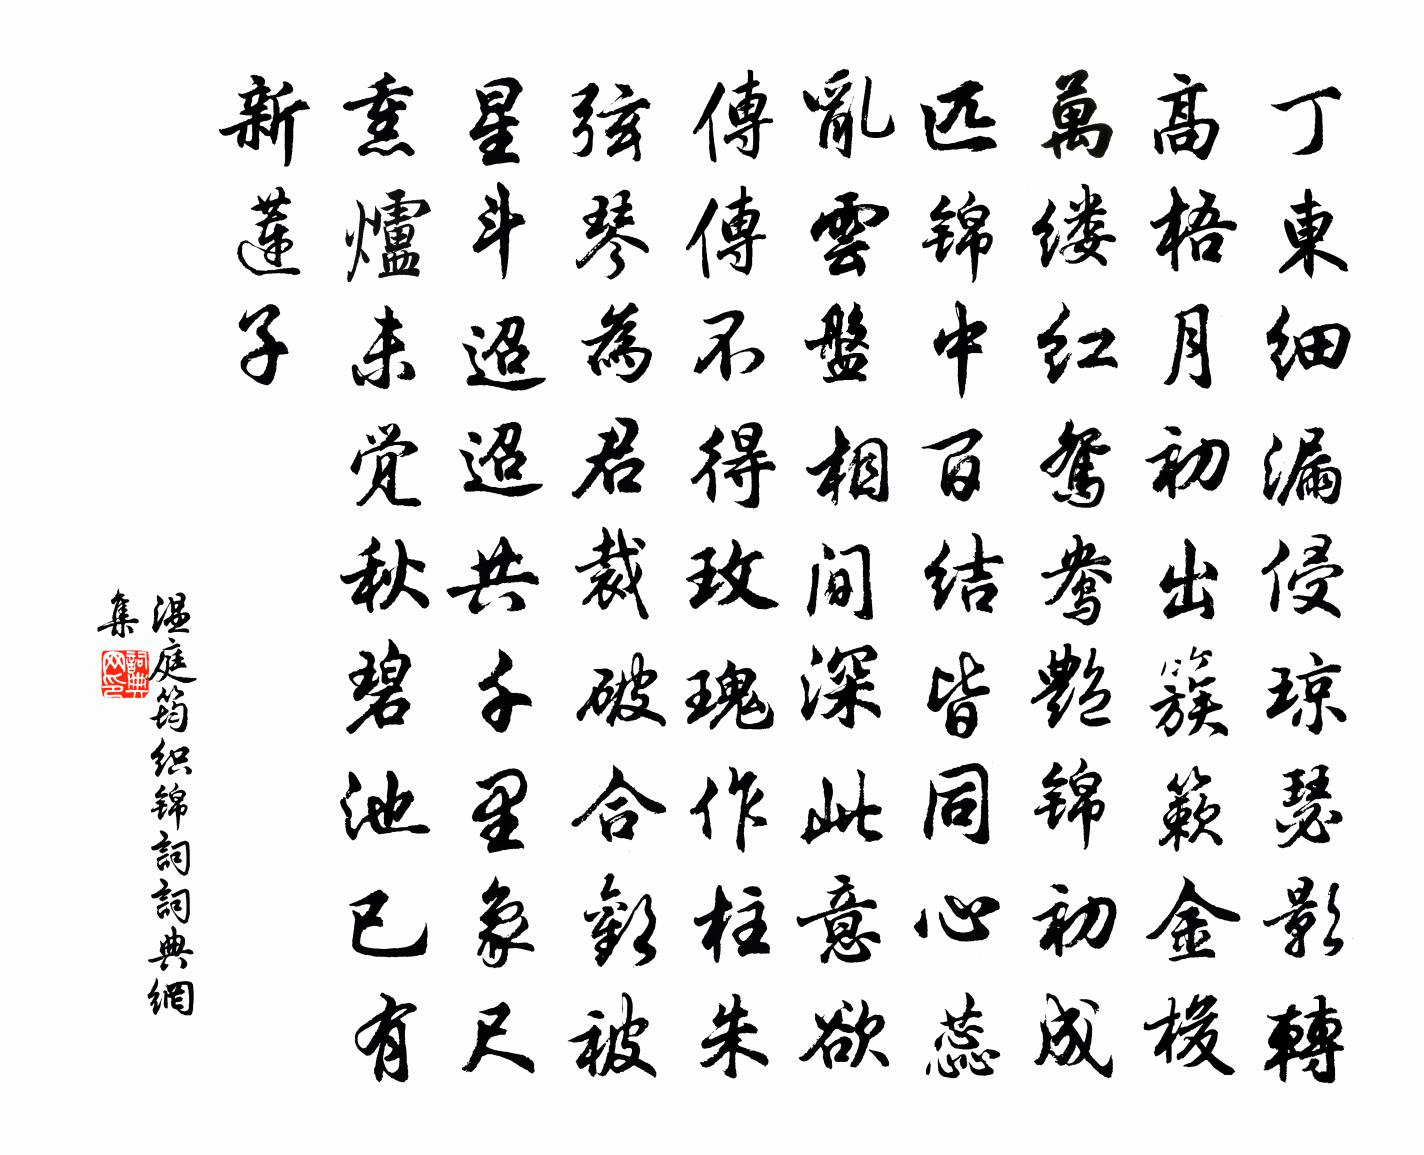 丁東细漏侵琼瑟影轉
高梧月初出簇簌金梭
萬缕红鴛鴦艷锦初成
匹锦中百结皆同心蕊
亂雲盤相间深此意欲
傳傳不得玫瑰作柱朱
弦琴為君裁破合歡被
星斗迢迢共千里象尺
熏爐未觉秋碧池已有
新蓮子
温庭筠织锦詞詞典網
集
詞典网印